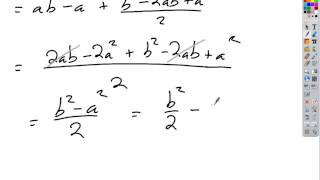 = ab - a² + (b² - 2ab + a²)/2
= (2ab - 2a² + b² - 2ab + a²)/2
= (b² - a²)/2 = b²/2 -